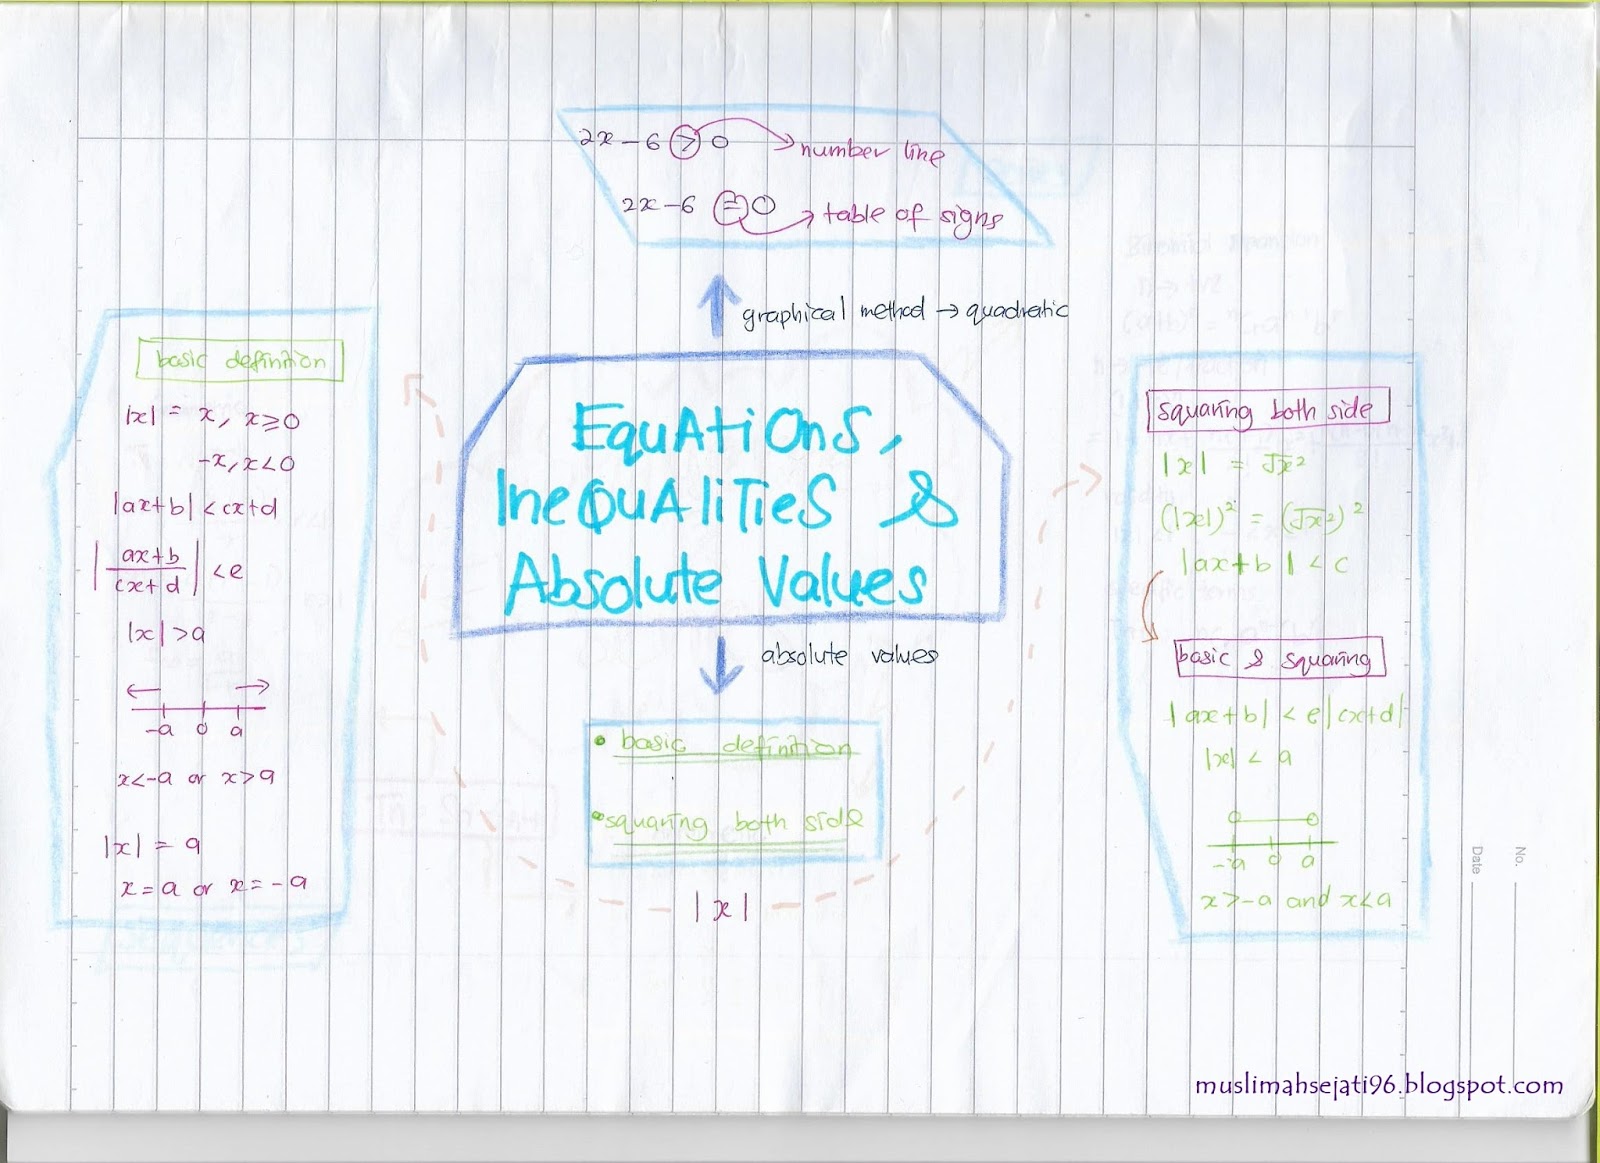 2x - 6 > 0 → number line
2x - 6 = 0 → table of signs
graphical method → quadratic
Equations,
Inequalities &
Absolute Values
absolute values
• basic definition
• squaring both side
|x|
basic definition
|x| = x, x ≥ 0
-x, x < 0
|ax+b| < cx+d
|ax+b / cx+d| < e
|x| > a
-a 0 a
x < -a or x > a
|x| = a
x = a or x = -a
squaring both side
|x| = √x²
(|x|)² = (√x²)²
|ax+b| < c
basic & squaring
|ax+b| < e|cx+d|
|x| < a
-a 0 a
x > -a and x < a
No.
Date
muslimahsejati96.blogspot.com